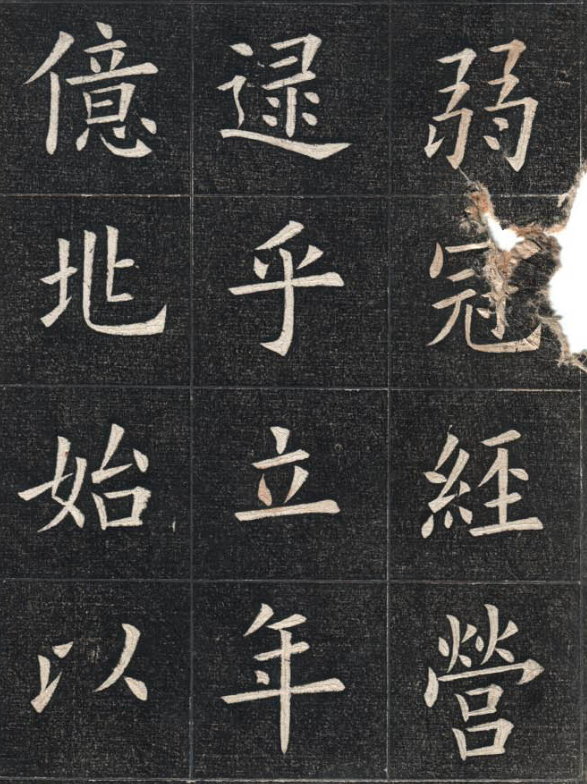 弱冠經營
逮乎立年
億兆始以